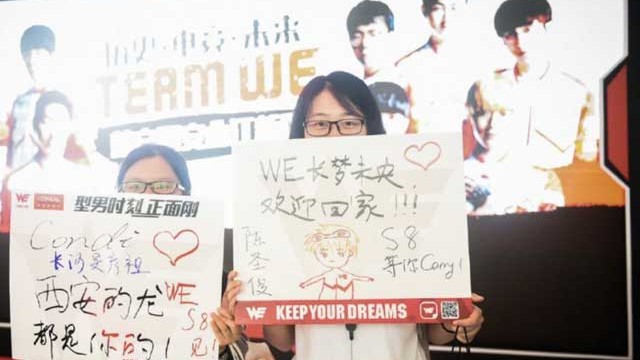 历史·电竞·未来
TEAM WE
WE
型男时刻 正面刚
Condi
长沙吴彦祖
西安的龙
都是你的!
WE
S8
见!
WE长梦未央
欢迎回家!!!
陈圣俊
S8
等你Carry!
WE KEEP YOUR DREAMS